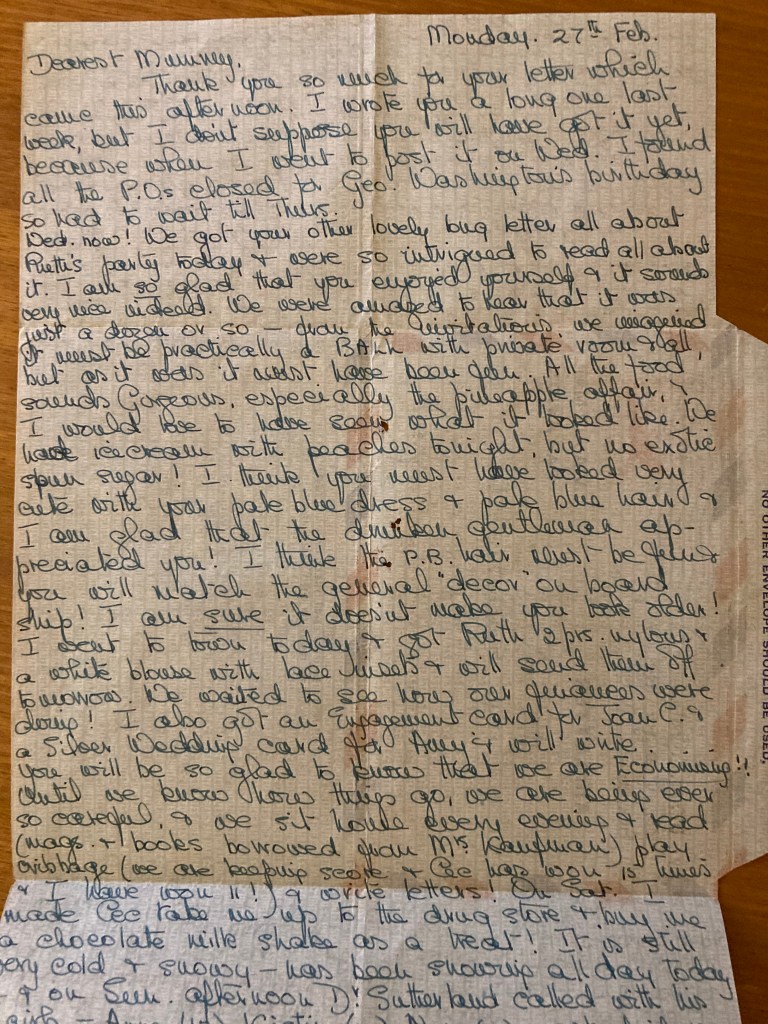 Monday. 27th Feb.
Dearest Mummey,
Thank you so much for your letter which
came this afternoon. I wrote you a long one last
week, but I don't suppose you will have got it yet,
because when I went to post it on Wed. I found
all the P.O.s closed for Geo. Washington's birthday
so had to wait till Thurs.
Wed. now! We got your other lovely long letter all about
Ruth's party today & were so intrigued to read all about
it. I am so glad that you enjoyed yourself & it sounds
very nice indeed. We were amazed to hear that it was
just a dozen or so – from the invitations we imagined
it must be practically a BALL with private room & all,
but as it was it must have been fun. All the food
sounds Gorgeous, especially the pineapple affair,
I would love to have seen what it looked like. We
had icecream with peaches tonight, but no exotic
spun sugar! I think you must have looked very
cute with your pale blue dress & pale blue hair &
I am glad that the drunken gentleman ap-
preciated you! I think the P.B. hair must be fun &
you will match the general "decor" on board
ship! I am sure it doesn't make you look older!
I went to town today & got Ruth 2 prs. nylons &
a white blouse with lace insets & will send them off
tomorrow. We waited to see how our finances were
doing! I also got an Engagement card for Joan C. &
a Silver Wedding card for Amy & will write.
You will be so glad to know that we are Economising!!
Until we know how things go, we are being ever
so careful, & we sit home every evening & read
(mags. & books borrowed from Mrs Kaufman) play
cribbage (we are keeping score & Cec has won 15 times
& I have won 11!) & write letters! On Sat. I
made Cec take me up to the drug store & buy me
a chocolate milk shake as a treat! It is still
very cold & snowy – has been snowing all day today
– & on Sun. afternoon Dr. Sutherland called with his
NO OTHER ENVELOPE SHOULD BE USED,